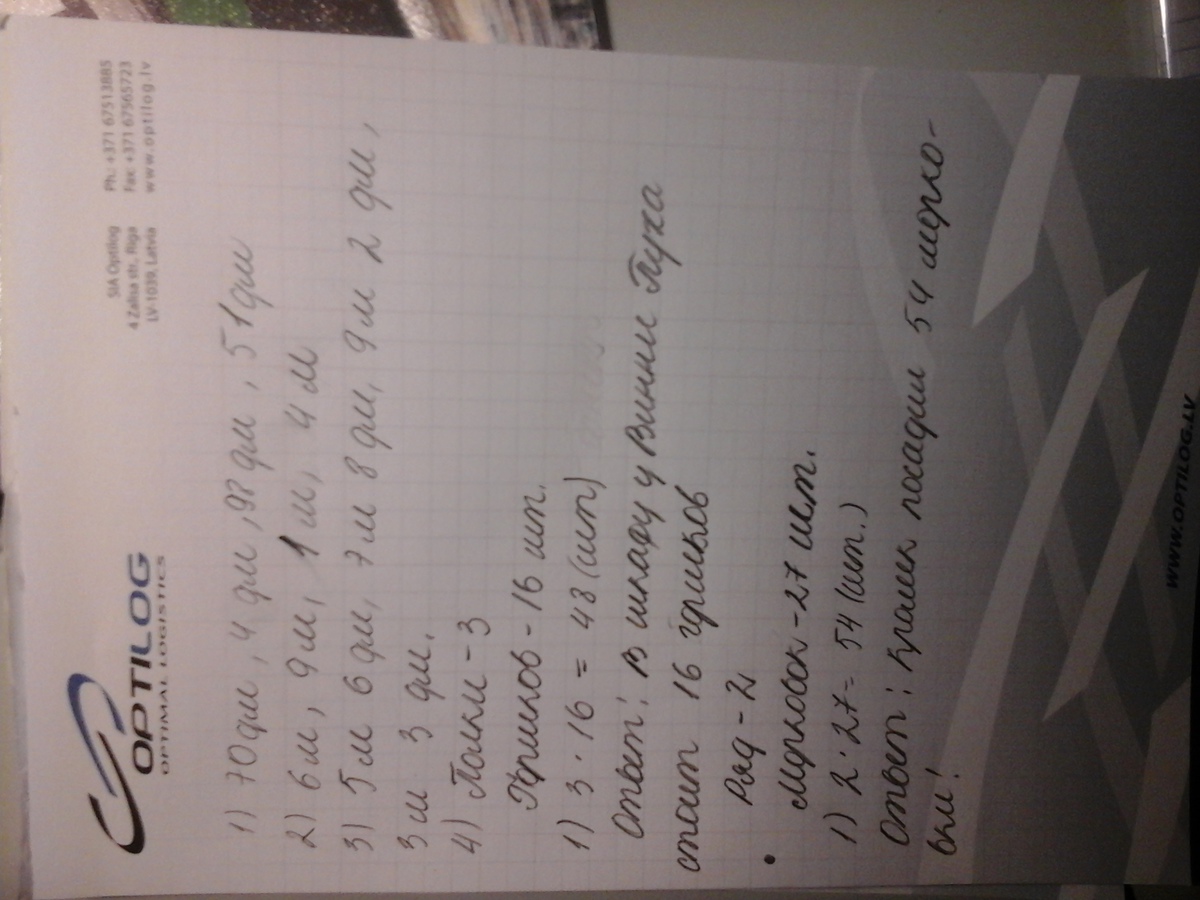 OPTILOG
OPTIMAL LOGISTICS
SIA Optilog
4 Zalisa str., Riga
LV-1039, Latvia
Ph.: +371 67513885
Fax: +371 67565723
www.optilog.lv
1) 70дм, 4 дм, 98 дм, 51дм
2) 6м, 9м, 1м, 4м
3) 5м 6 дм, 7м 8 дм, 9м 2 дм,
3м 3 дм.
4) Полки - 3
Горшков - 16 шт.
1) 3 · 16 = 48 (шт)
Ответ: в шкафу у Винни Пуха
стоит 16 горшков
Ряд - 2
• Морковок - 27 шт.
1) 2 · 27 = 54 (шт.)
Ответ: Кролик посадил 54 морко-
вки!
WWW.OPTILOG.LV